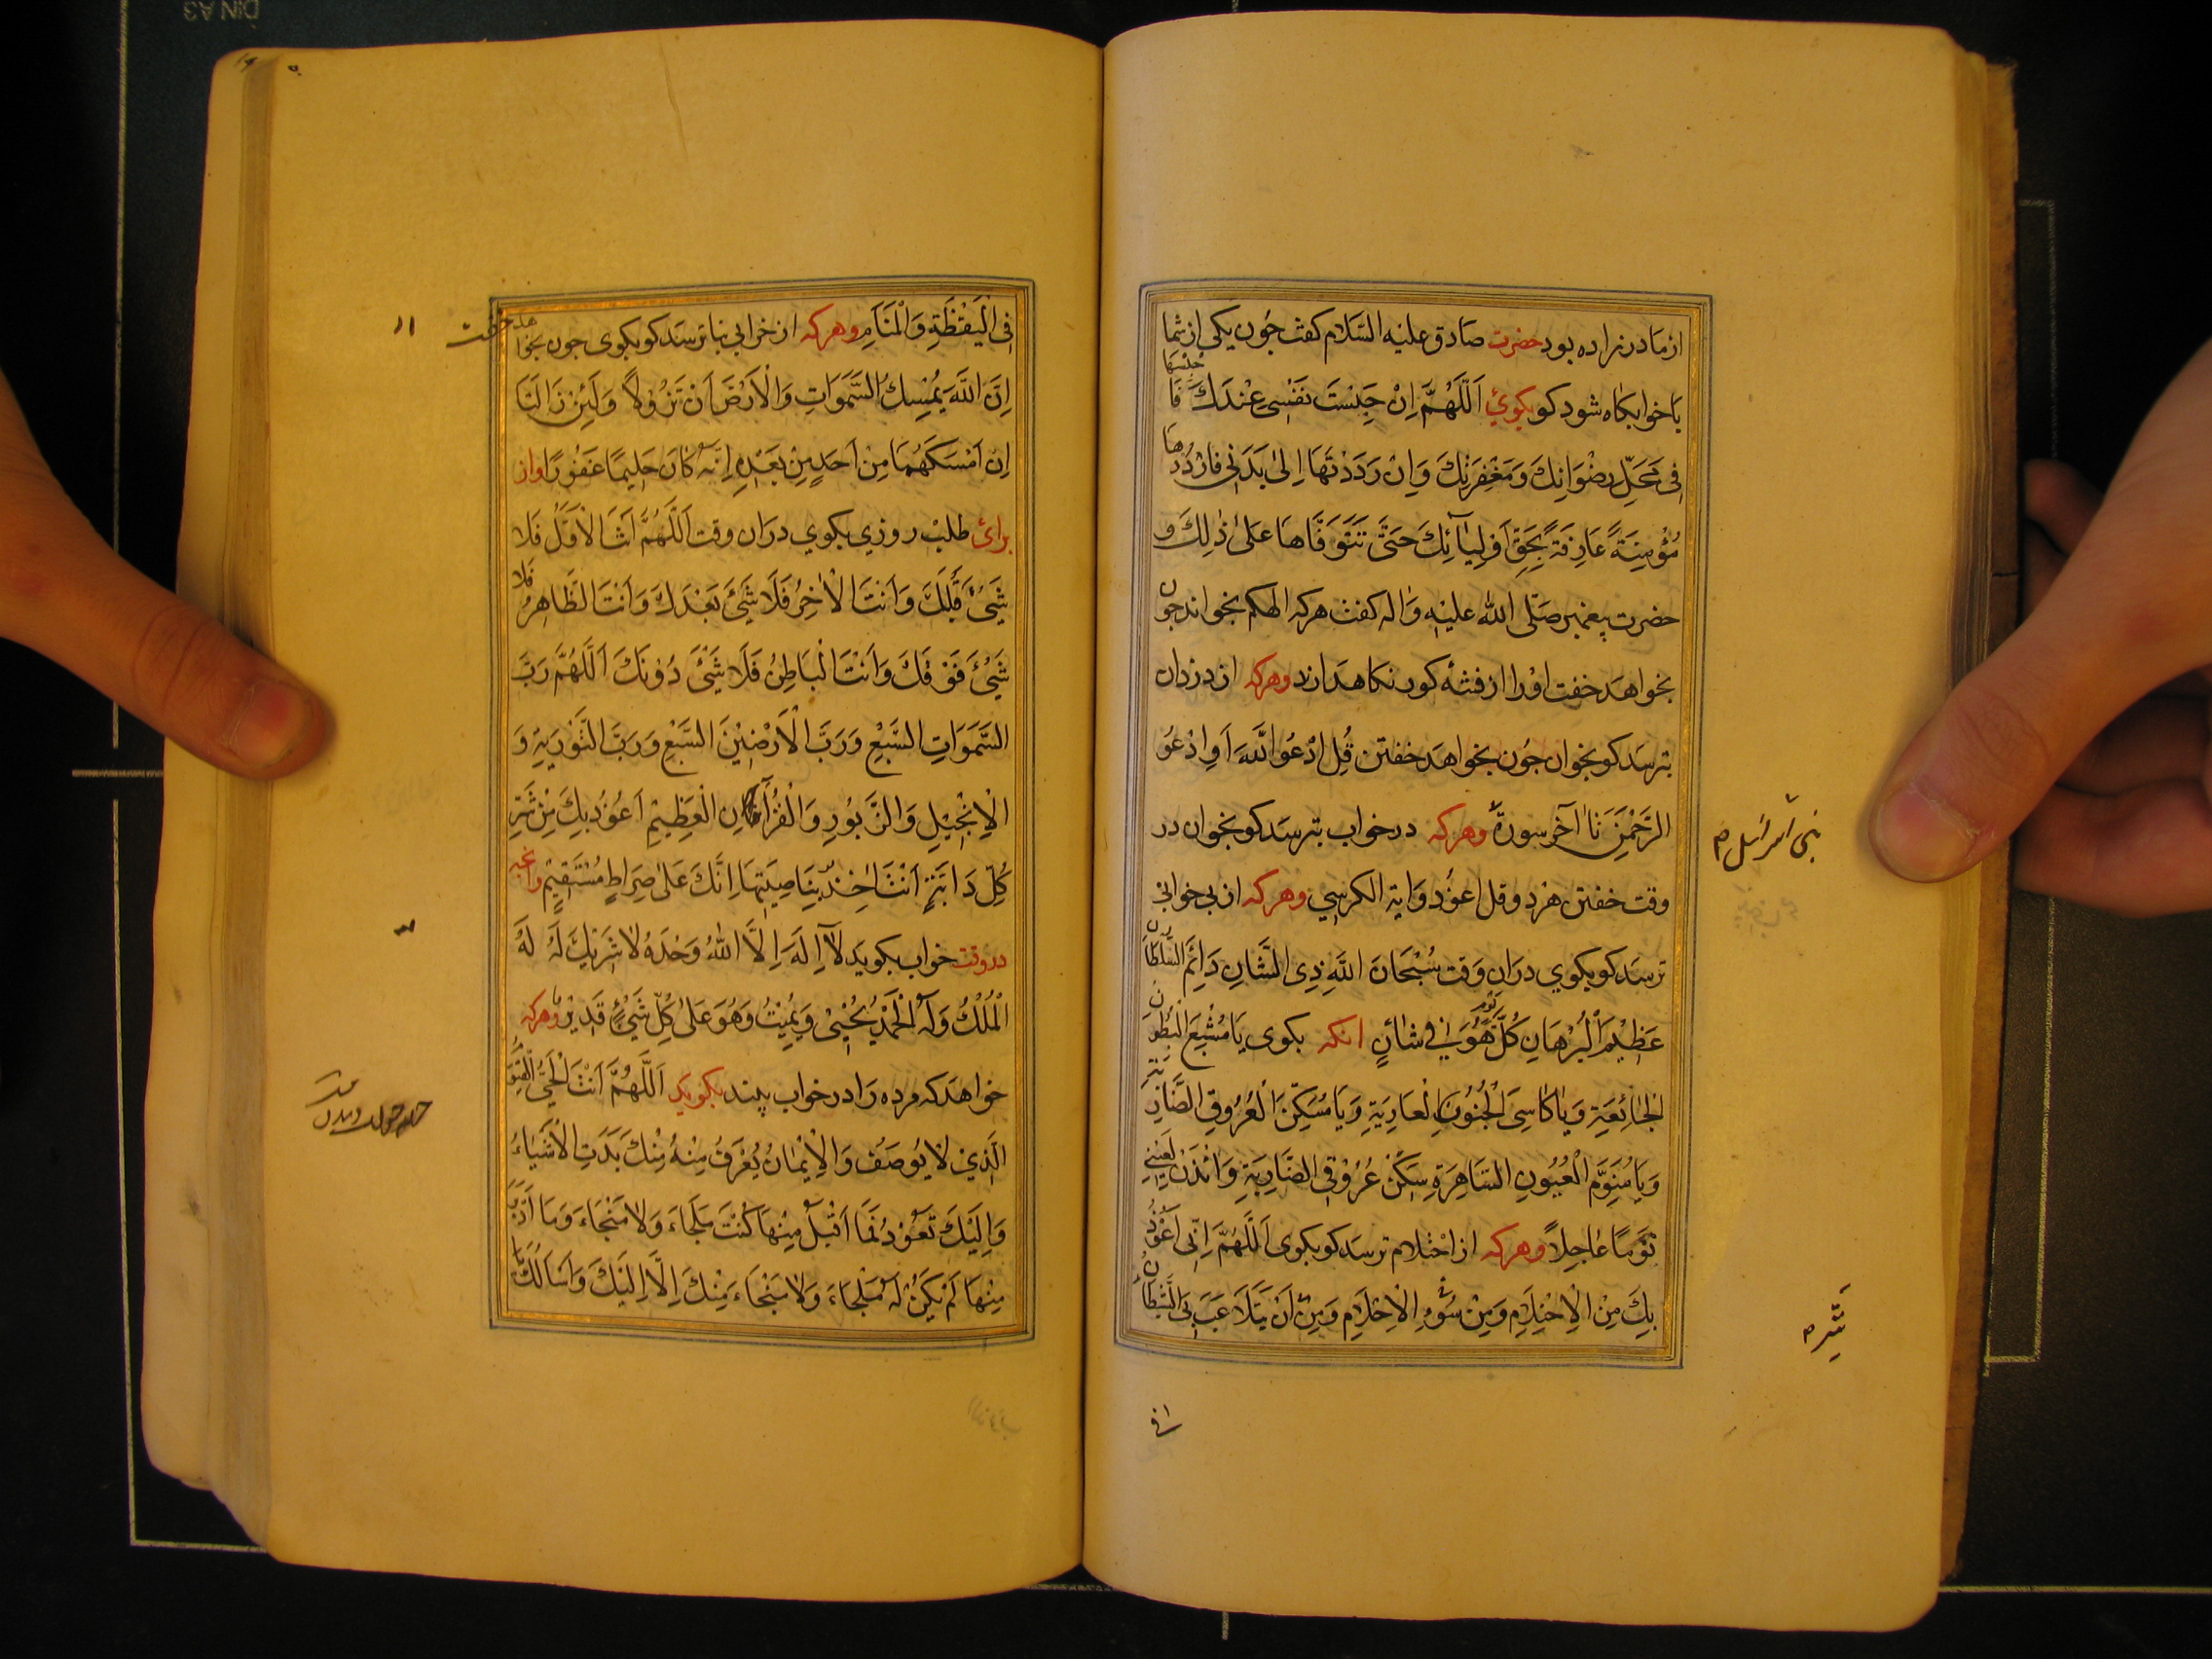 از مادر زاده بود حضرت صادق علیه السلام کفت جون یکی از شما
با خوابکاه شود کو بکوئ اَللّٰهُمَّ اِنْ حَبَسْتَ نَفْسِي عِنْدَكَ فَا
حْبِسْهَا
فِي مَحَلِّ رِضْوَانِكَ وَمَغْفِرَتِكَ وَاِنْ رَدَدْتَهَا اِلىٰ بَدَنِي فَارْدُدْهَا
مُؤْمِنَةً عَارِفَةً بِحَقِّ اَوْلِيَائِكَ حَتَّى تَتَوَفَّاهَا عَلىٰ ذٰلِكَ و
حضرت پیغمبر صَلّی الله علیه وَاله کفت هرکه الهکم بخواند جون
بخواهد خفت اوْرا از فتنهٔ کور نکاهدارند وهرکه از دزدان
بترسَد کو بخوان جُون بخواهَد خفتن قُلِ ادْعُوا اللَّهَ اَوِ ادْعُوا
الرَّحْمٰنَ تا آخر سورة وهرکه در خواب بترسَد کو بخوان در
وقت خفتن هرد و قل اعوُد وَایة الکرسي وهرکه از بی خوابی
ترسَد کو بکوي دران وَقت سُبْحَانَ اللَّهِ ذِي الشَّانِ دَائِمِ السُّلْطَانِ
عَظِيْمِ الْبُرْهَانِ كُلَّ يَوْمٍ هُوَ فِي شَانٍ انکه بکوی يَا مُشْبِعَ الْبُطُونِ
الْجَائِعَةِ وَيَا كَاسِيَ الْجُنُوبِ الْعَارِيَةِ وَيَا مُسَكِّنَ الْعُرُوقِ الضَّارِبَةِ
وَيَا مُنَوِّمَ الْعُيُونِ السَّاهِرَةِ سَكِّنْ عُرُوْقِي الضَّارِبَةِ وَائْذَنْ لِعَيْنِي
نَوْمًا عَاجِلاً وهرکه از احْتلام ترسَد کو بکوی اَللّٰهُمَّ اِنِّي اَعُوْذُ
بِكَ مِنَ الْاِحْتِلَامِ وَمِنْ سُوْءِ الْاَحْلَامِ وَمِنْ اَنْ يَتَلَاعَبَ بِيَ الشَّيْطَانُ
بنی اسرائیل
فِي الْيَقْظَةِ وَالْمَنَامِ وهرکه از خرابی بنا ترسَد کو بکوی جون بخواهد خفت
اِنَّ اللَّهَ يُمْسِكُ السَّمَوَاتِ وَالْاَرْضَ اَنْ تَزُوْلَا وَلَئِنْ زَالَتَا
اِنْ اَمْسَكَهُمَا مِنْ اَحَدٍ مِنْ بَعْدِهِ اِنَّهُ كَانَ حَلِيمًا غَفُوْرًا واز
برائ طلب روزي بکوي دران وقت اَللّٰهُمَّ اَنْتَ الْاَوَّلُ فَلَا
شَيْءَ قَبْلَكَ وَاَنْتَ الْاٰخِرُ فَلَا شَيْءَ بَعْدَكَ وَاَنْتَ الظَّاهِرُ فَلَا
شَيْءَ فَوْقَكَ وَاَنْتَ الْبَاطِنُ فَلَا شَيْءَ دُوْنَكَ اَللّٰهُمَّ رَبَّ
السَّمَوَاتِ السَّبْعِ وَرَبَّ الْاَرَضِيْنَ السَّبْعِ وَرَبَّ التَّوْرٰيةِ وَ
الْاِنْجِيْلِ وَالزَّبُوْرِ وَالْقُرْآنِ الْعَظِيْمِ اَعُوْذُ بِكَ مِنْ شَرِّ
كُلِّ دَابَّةٍ اَنْتَ اٰخِذٌ بِنَاصِيَتِهَا اِنَّكَ عَلىٰ صِرَاطٍ مُسْتَقِيْمٍ وانچه
در وقت خواب بکوید لَا اِلَهَ اِلَّا اللهُ وَحْدَهُ لَا شَرِيْكَ لَهُ لَهُ
الْمُلْكُ وَلَهُ الْحَمْدُ يُحْيِيْ وَيُمِيْتُ وَهُوَ عَلىٰ كُلِّ شَيْءٍ قَدِيْرٌ وهرکه
خواهَد که مرده رَا در خواب بیند بکوید اَللّٰهُمَّ اَنْتَ الْحَيُّ الْقَيُّوْمُ
الَّذِيْ لَا يُوصَفُ وَالْاِيْمَانُ يُعْرَفُ مِنْهُ مِنْكَ بَدَتِ الْاَشْيَاءُ
وَاِلَيْكَ تَعُوْدُ فَمَا اَقْبَلَ مِنْهَا كُنْتَ مَلْجَاءَ وَلَا مَنْجَاءَ وَمَا اَدْبَرَ
مِنْهَا لَمْ يَكُنْ لَهُ مَلْجَاءَ وَلَا مَنْجَاءَ مِنْكَ اِلَّا اِلَيْكَ وَاَسْاَلُكَ
DIN A3